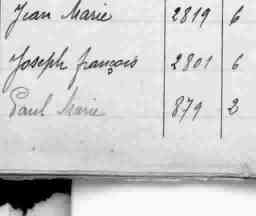 Jean Marie 2819 6
Joseph françois 2801 6
Paul Marie 879 2